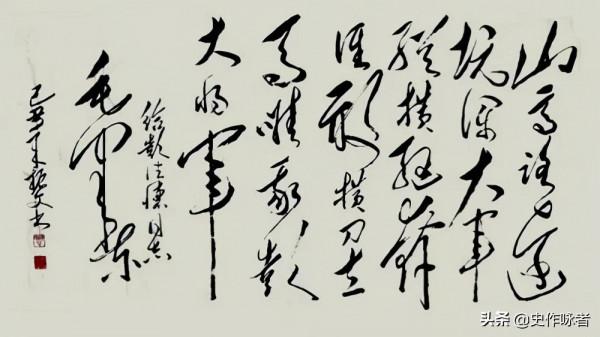 山高路远
坑深大军
纵横驰奔
谁敢横刀立
马唯我彭
大将军
给彭德怀同志
毛泽东
己丑年 文书
头条 @史作咏者